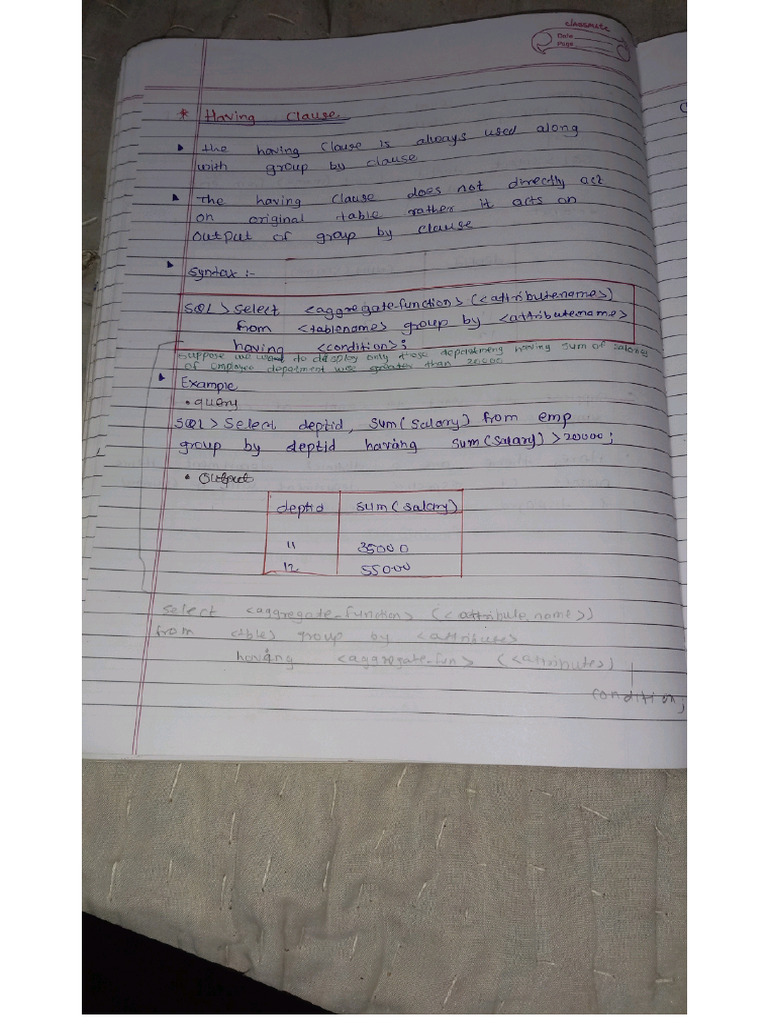 classmate
Date
Page
* Having Clause
the having Clause is always used along
with group by clause
The having Clause does not directly act
on original table rather it acts on
output of group by clause
Syntax :-
SQL > Select <aggregate-function> (<attributename>)
from <tablename> group by <attributename>
having <condition>;
Suppose we want to display only these department having sum of salaries
of employee department wise greater than 20000
Example
• query
SQL > Select deptid, sum(salary) from emp
group by deptid having sum(salary) > 20000;
• Output
deptid sum(salary)
11 35000
12 55000
select <aggregate_function> (<attribute_name>)
from <tble> group by <attributes>
having <aggregate-fun> (<attributes>)
condition;